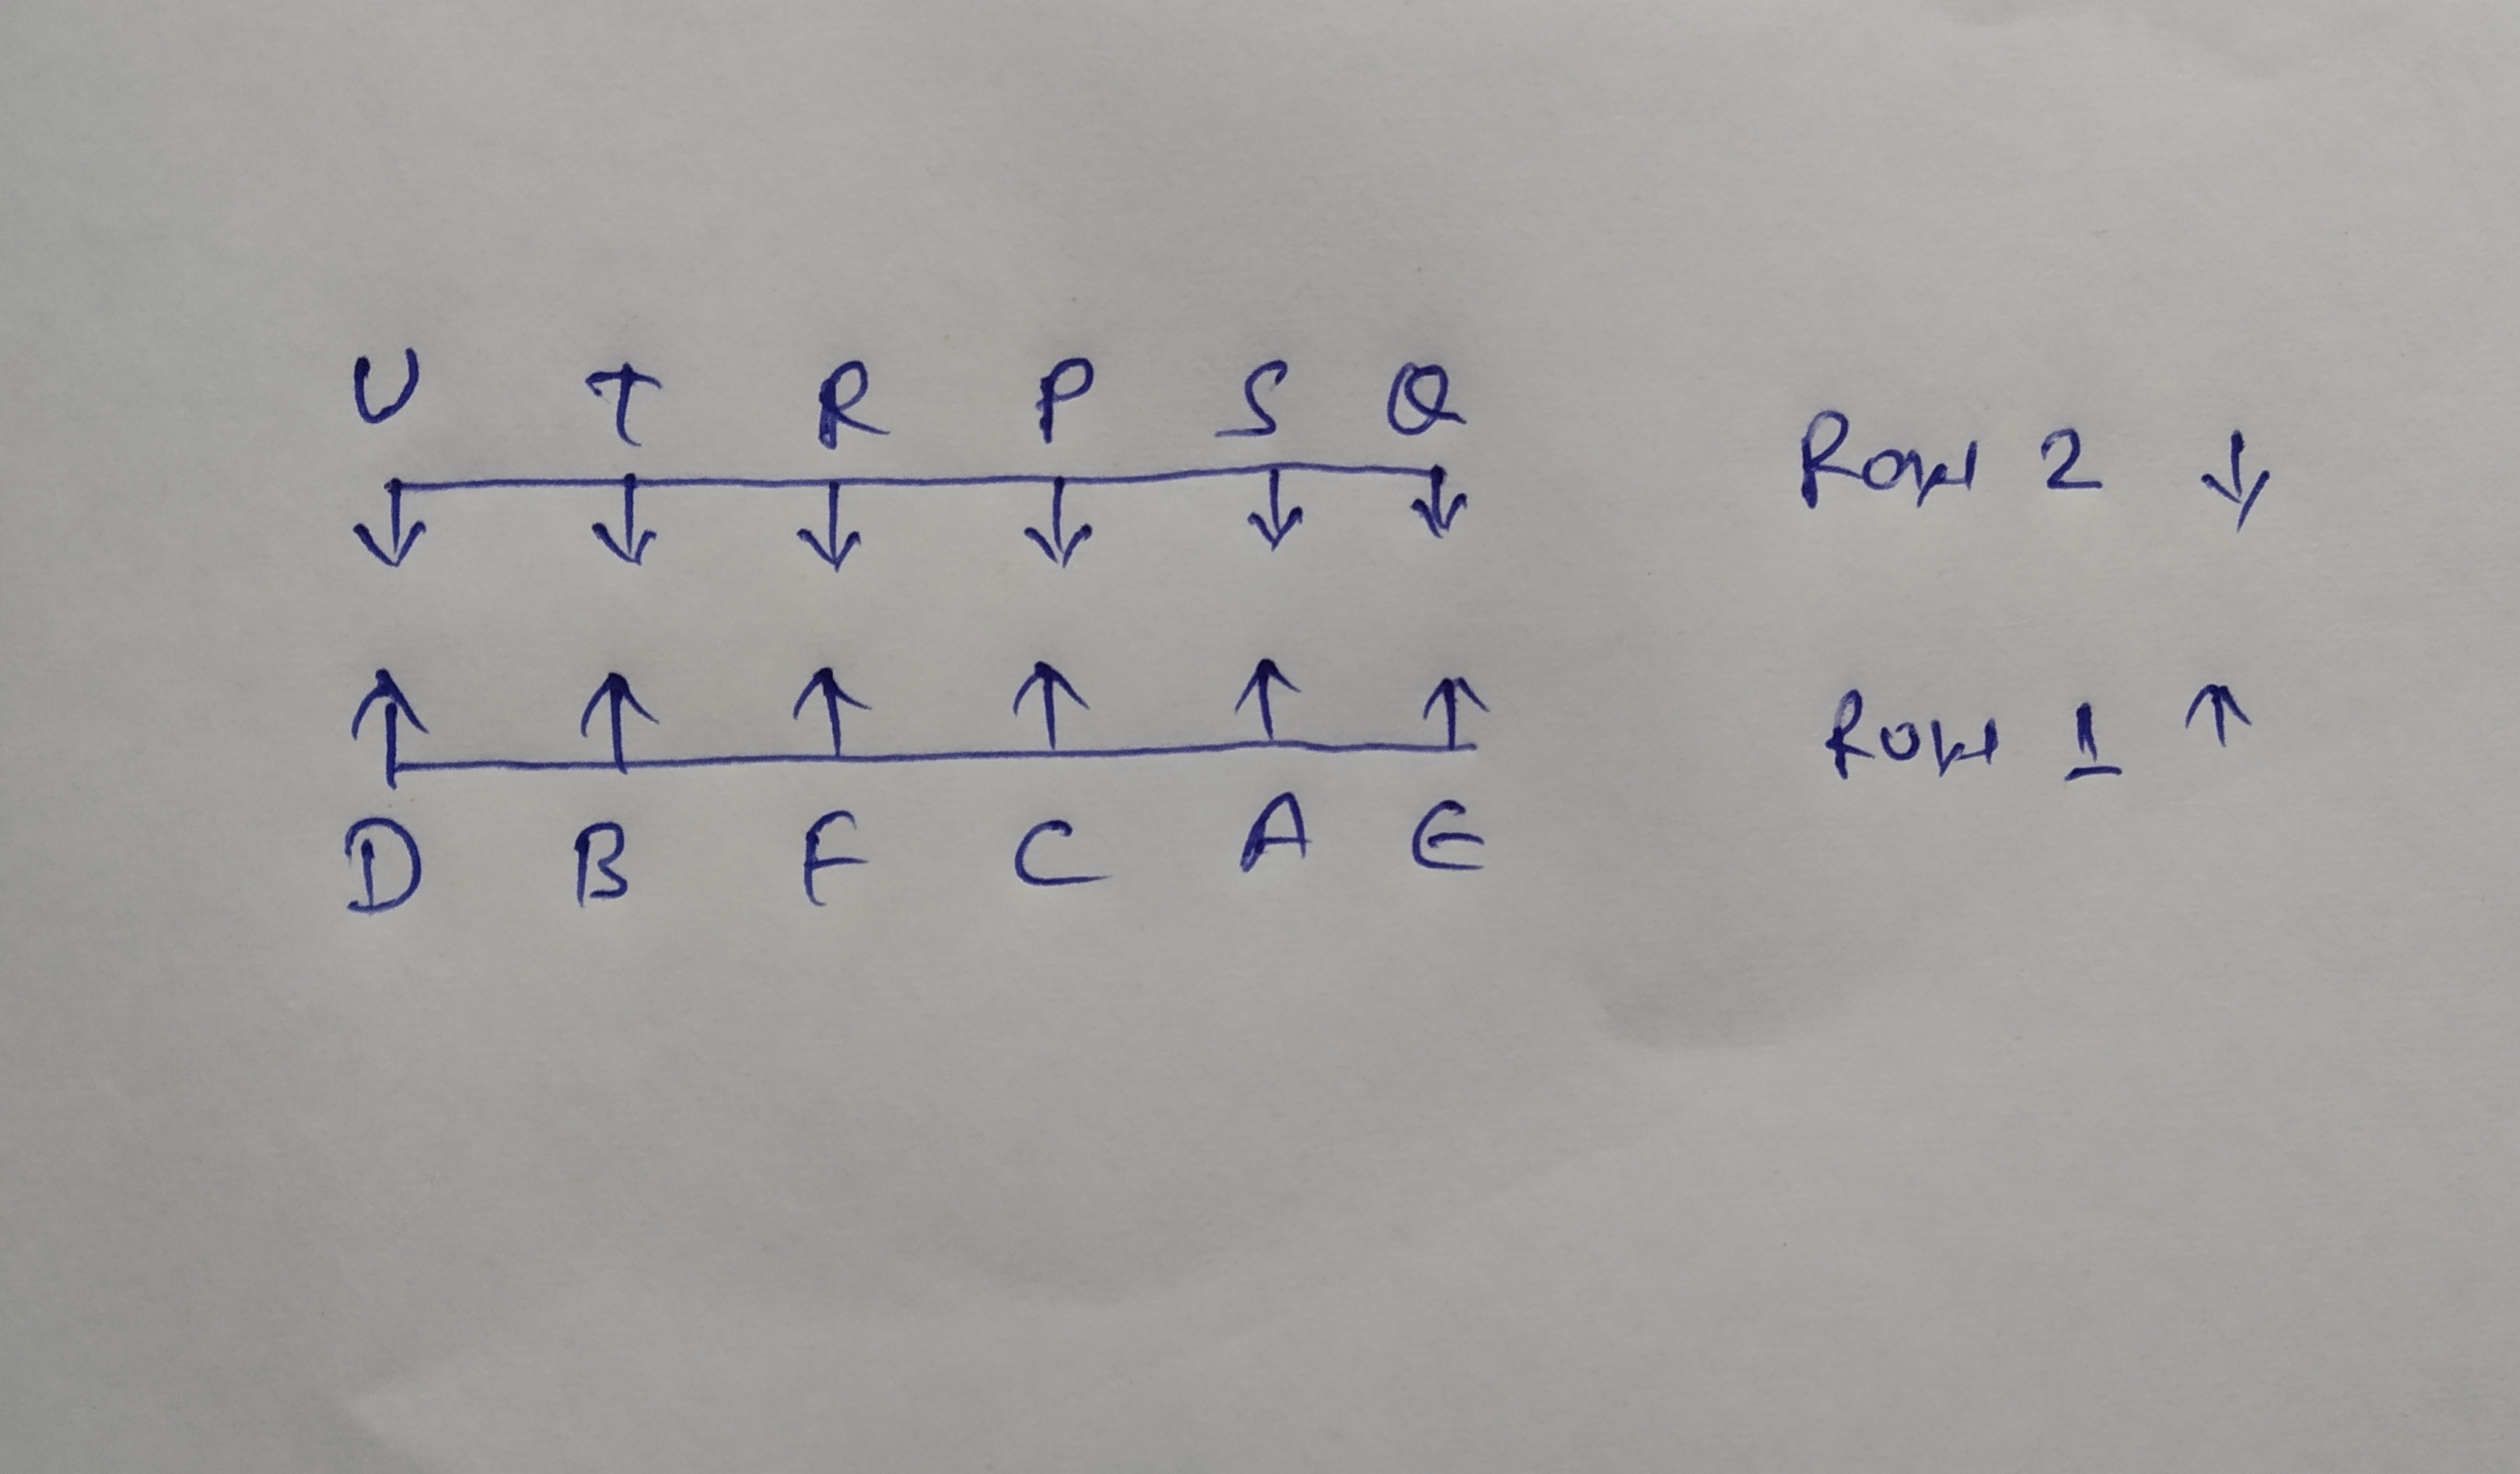 U T R P S Q Row 2 ↓
Row 1 ↑
D B F C A E